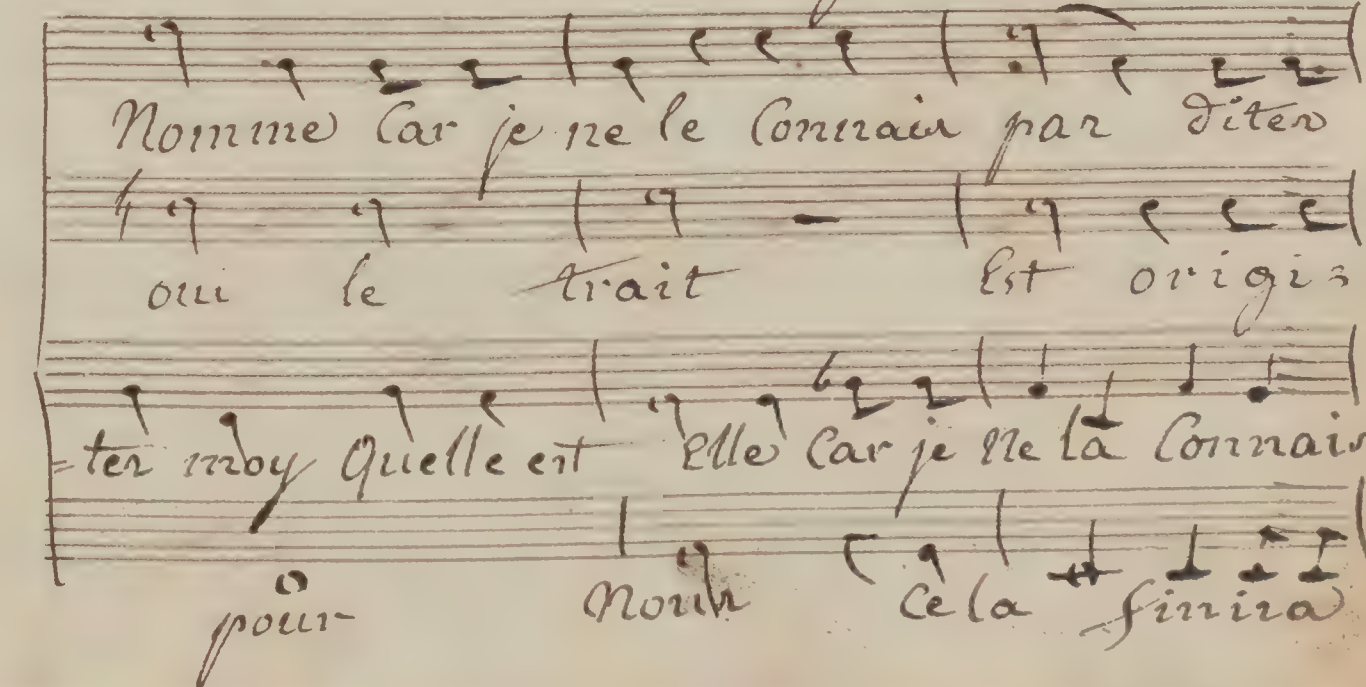 Nomme Car je ne le Connais pas dites
oui le trait Est origi=
=tes moy Quelle est elle Car je ne la Connais
pour Nous Cela finira